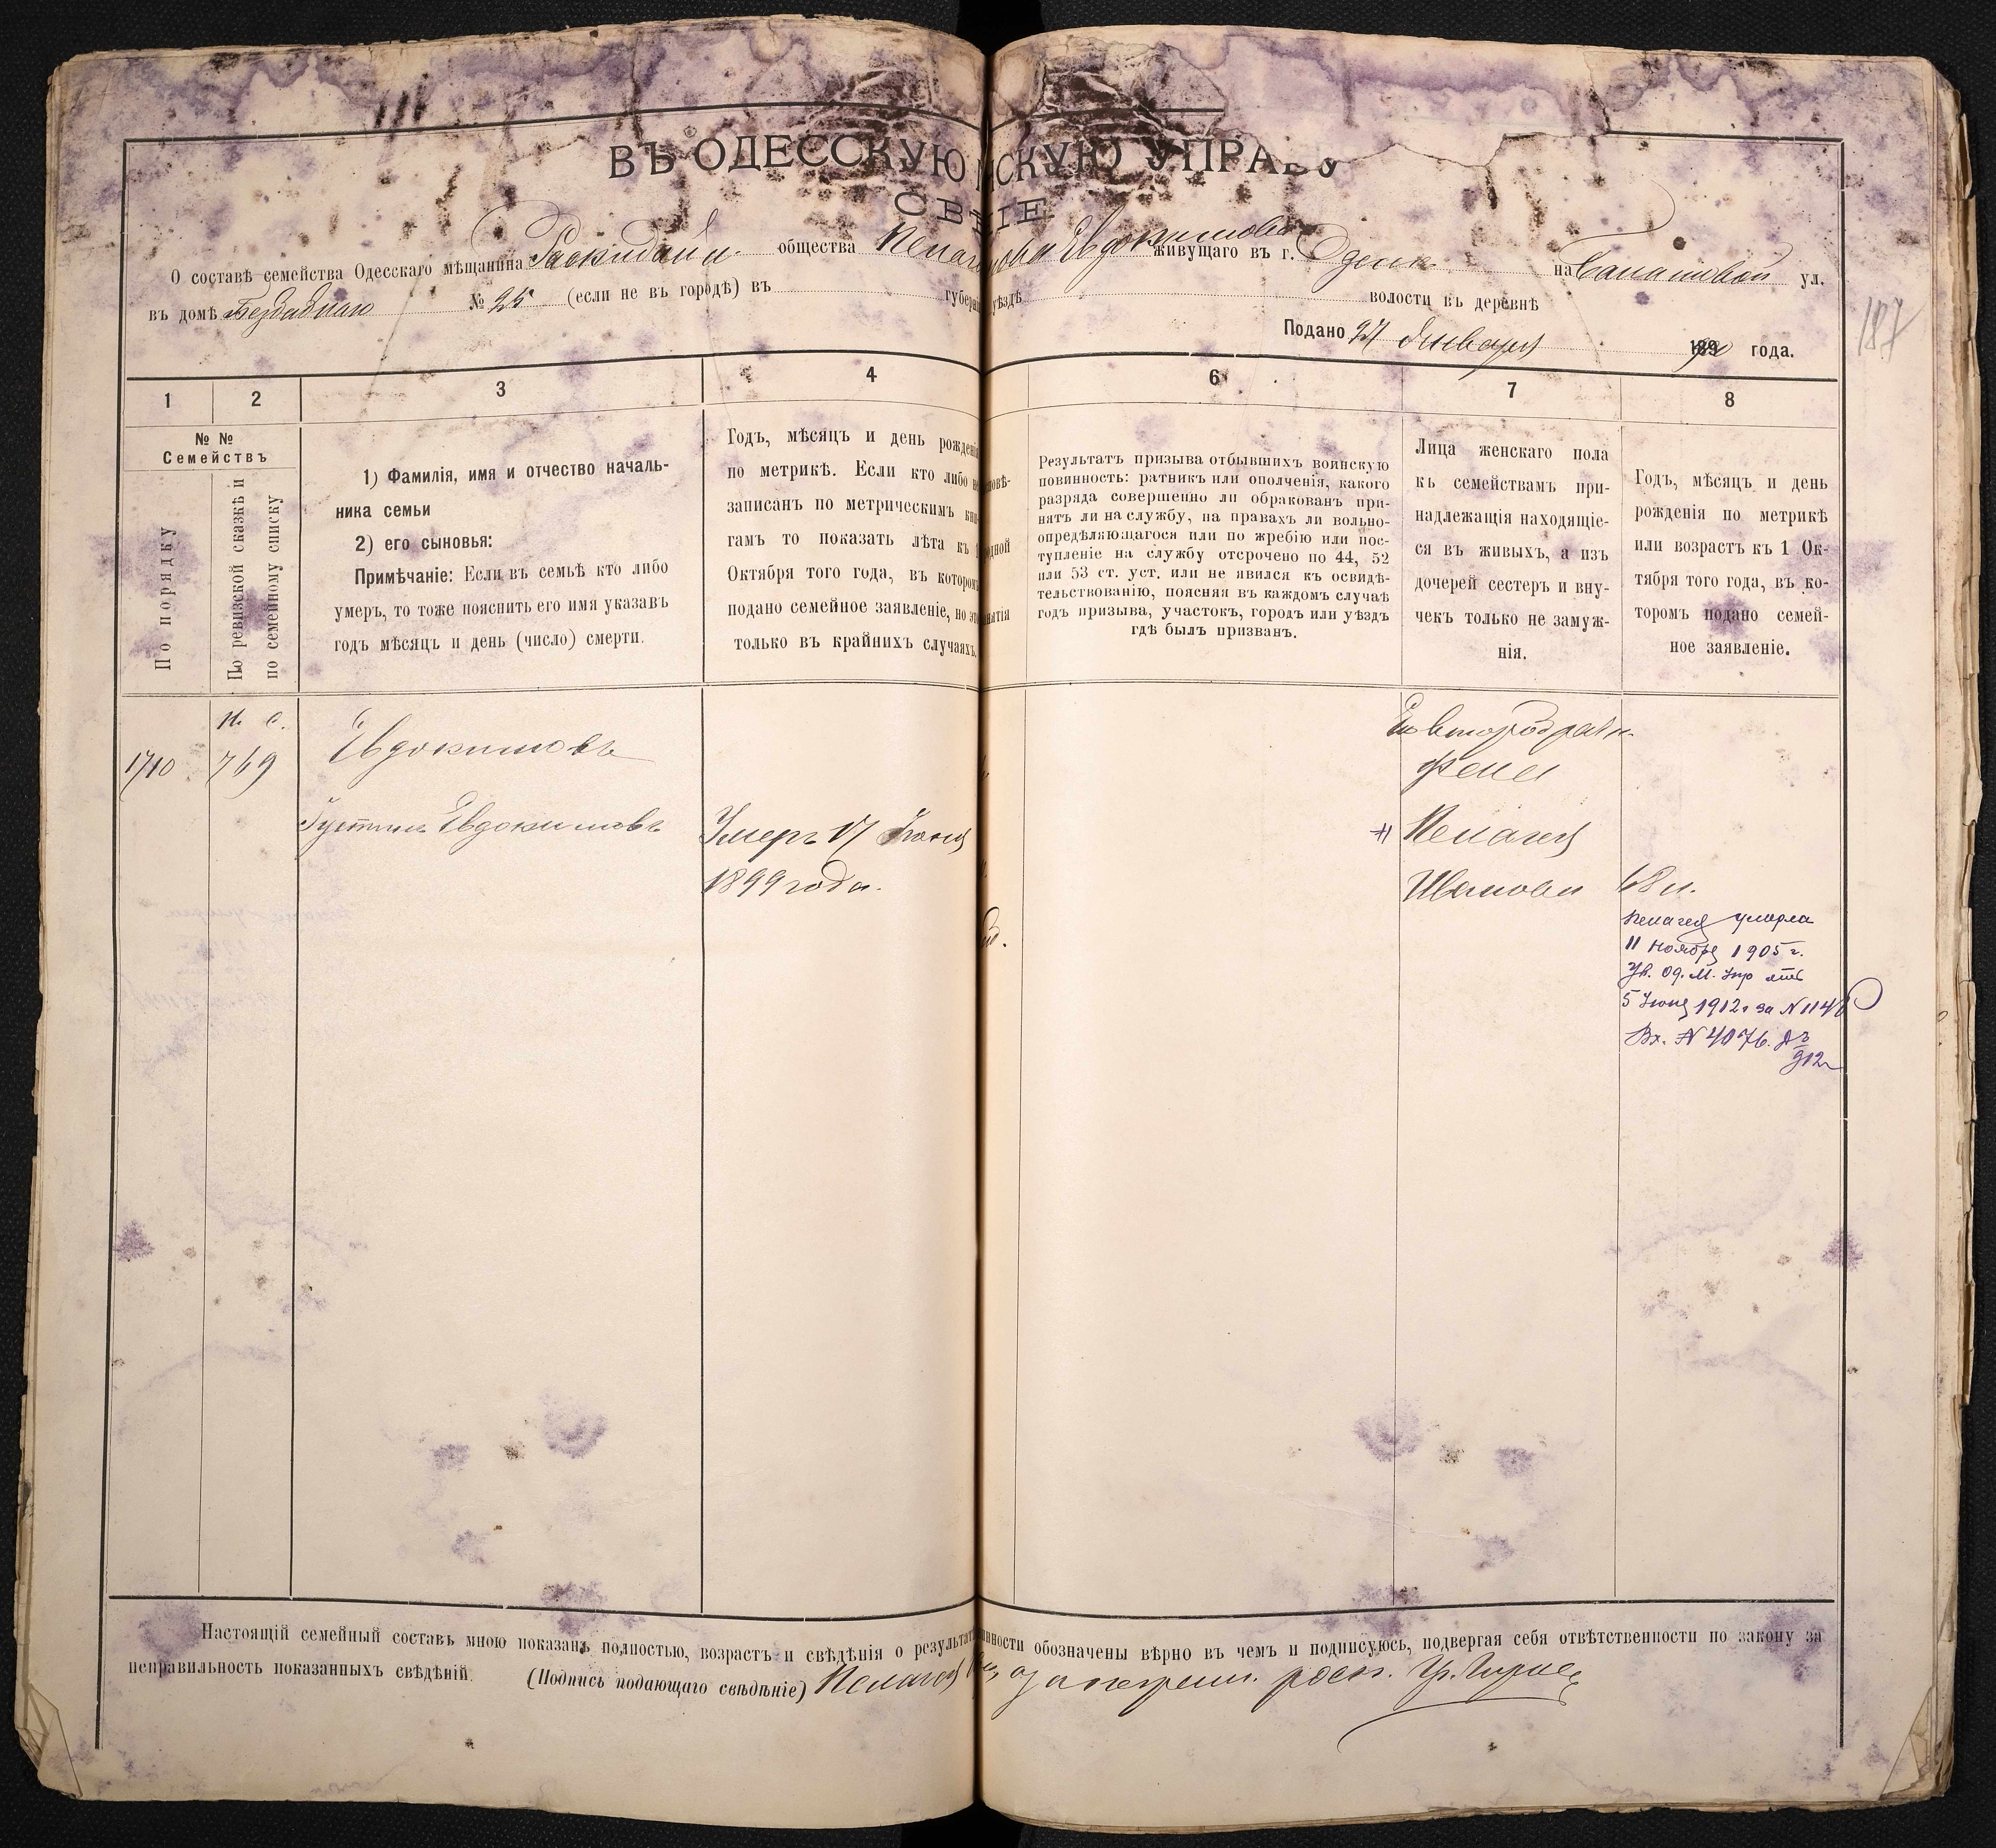 ВЪ ОДЕССКУЮ НСКУЮ УПРАВУ
СВ НІЕ
О составѣ семейства Одесскаго мѣщанина Раскидайл. общества Пелаг ова Евдокимова живущаго въ г. Одессѣ на ул.
въ домѣ № 25 (если не въ городѣ) въ губерн уѣздѣ волости въ деревнѣ
Подано 27 Января 189 года.
187
1 2 3 4 6 7 8
№ №
Семействъ
По порядку
По ревизской сказкѣ и
по семейному списку
1) Фамилія, имя и отчество началь-
ника семьи
2) его сыновья:
Примѣчаніе: Если въ семьѣ кто либо
умеръ, то тоже пояснить его имя указавъ
годъ мѣсяцъ и день (число) смерти.
Годъ, мѣсяцъ и день рожденія
по метрикѣ. Если кто либо не
записанъ по метрическимъ кни-
гамъ то показать лѣта къ 1
Октября того года, въ которомъ
подано семейное заявленіе, но это
только въ крайнихъ случаяхъ.
повѣ-
одной
нятія
Результатъ призыва отбывшихъ воинскую
повинность: ратникъ или ополченія, какого
разряда совершенно ли обракованъ при-
нятъ ли на службу, на правахъ ли вольно-
опредѣляющагося или по жребію или пос-
тупленіе на службу отсрочено по 44, 52
или 53 ст. уст. или не явился къ освидѣ-
тельствованію, поясняя въ каждомъ случаѣ
годъ призыва, участокъ, городъ или уѣздъ
гдѣ былъ призванъ.
Лица женскаго пола
къ семействамъ при-
надлежащія находящіе-
ся въ живыхъ, а изъ
дочерей сестеръ и вну-
чекъ только не замуж-
нія.
Годъ, мѣсяцъ и день
рожденія по метрикѣ
или возрастъ къ 1 Ок-
тября того года, въ ко-
торомъ подано семей-
ное заявленіе.
1710
н. с.
769
Евдокимовъ
Густинъ Евдокимовъ
Умеръ 17 Іюня
1899 года.
Его второбрачн.
жена
Пелагея
Иванова 68 л.
Пелагея умерла
11 Ноября 1905 г.
Ув. Од. М. Упр отъ
5 Іюня 1912 г за N 1146
Вх. N 4076.
912 г
Настоящій семейный составъ мною показанъ полностью, возрастъ и свѣдѣнія о результат инности обозначены вѣрно въ чемъ и подписуюсь, подвергая себя отвѣтственности по закону за
неправильность показанныхъ свѣдѣній. (Подпись подающаго свѣдѣніе) Пелагея за неграм. росп.